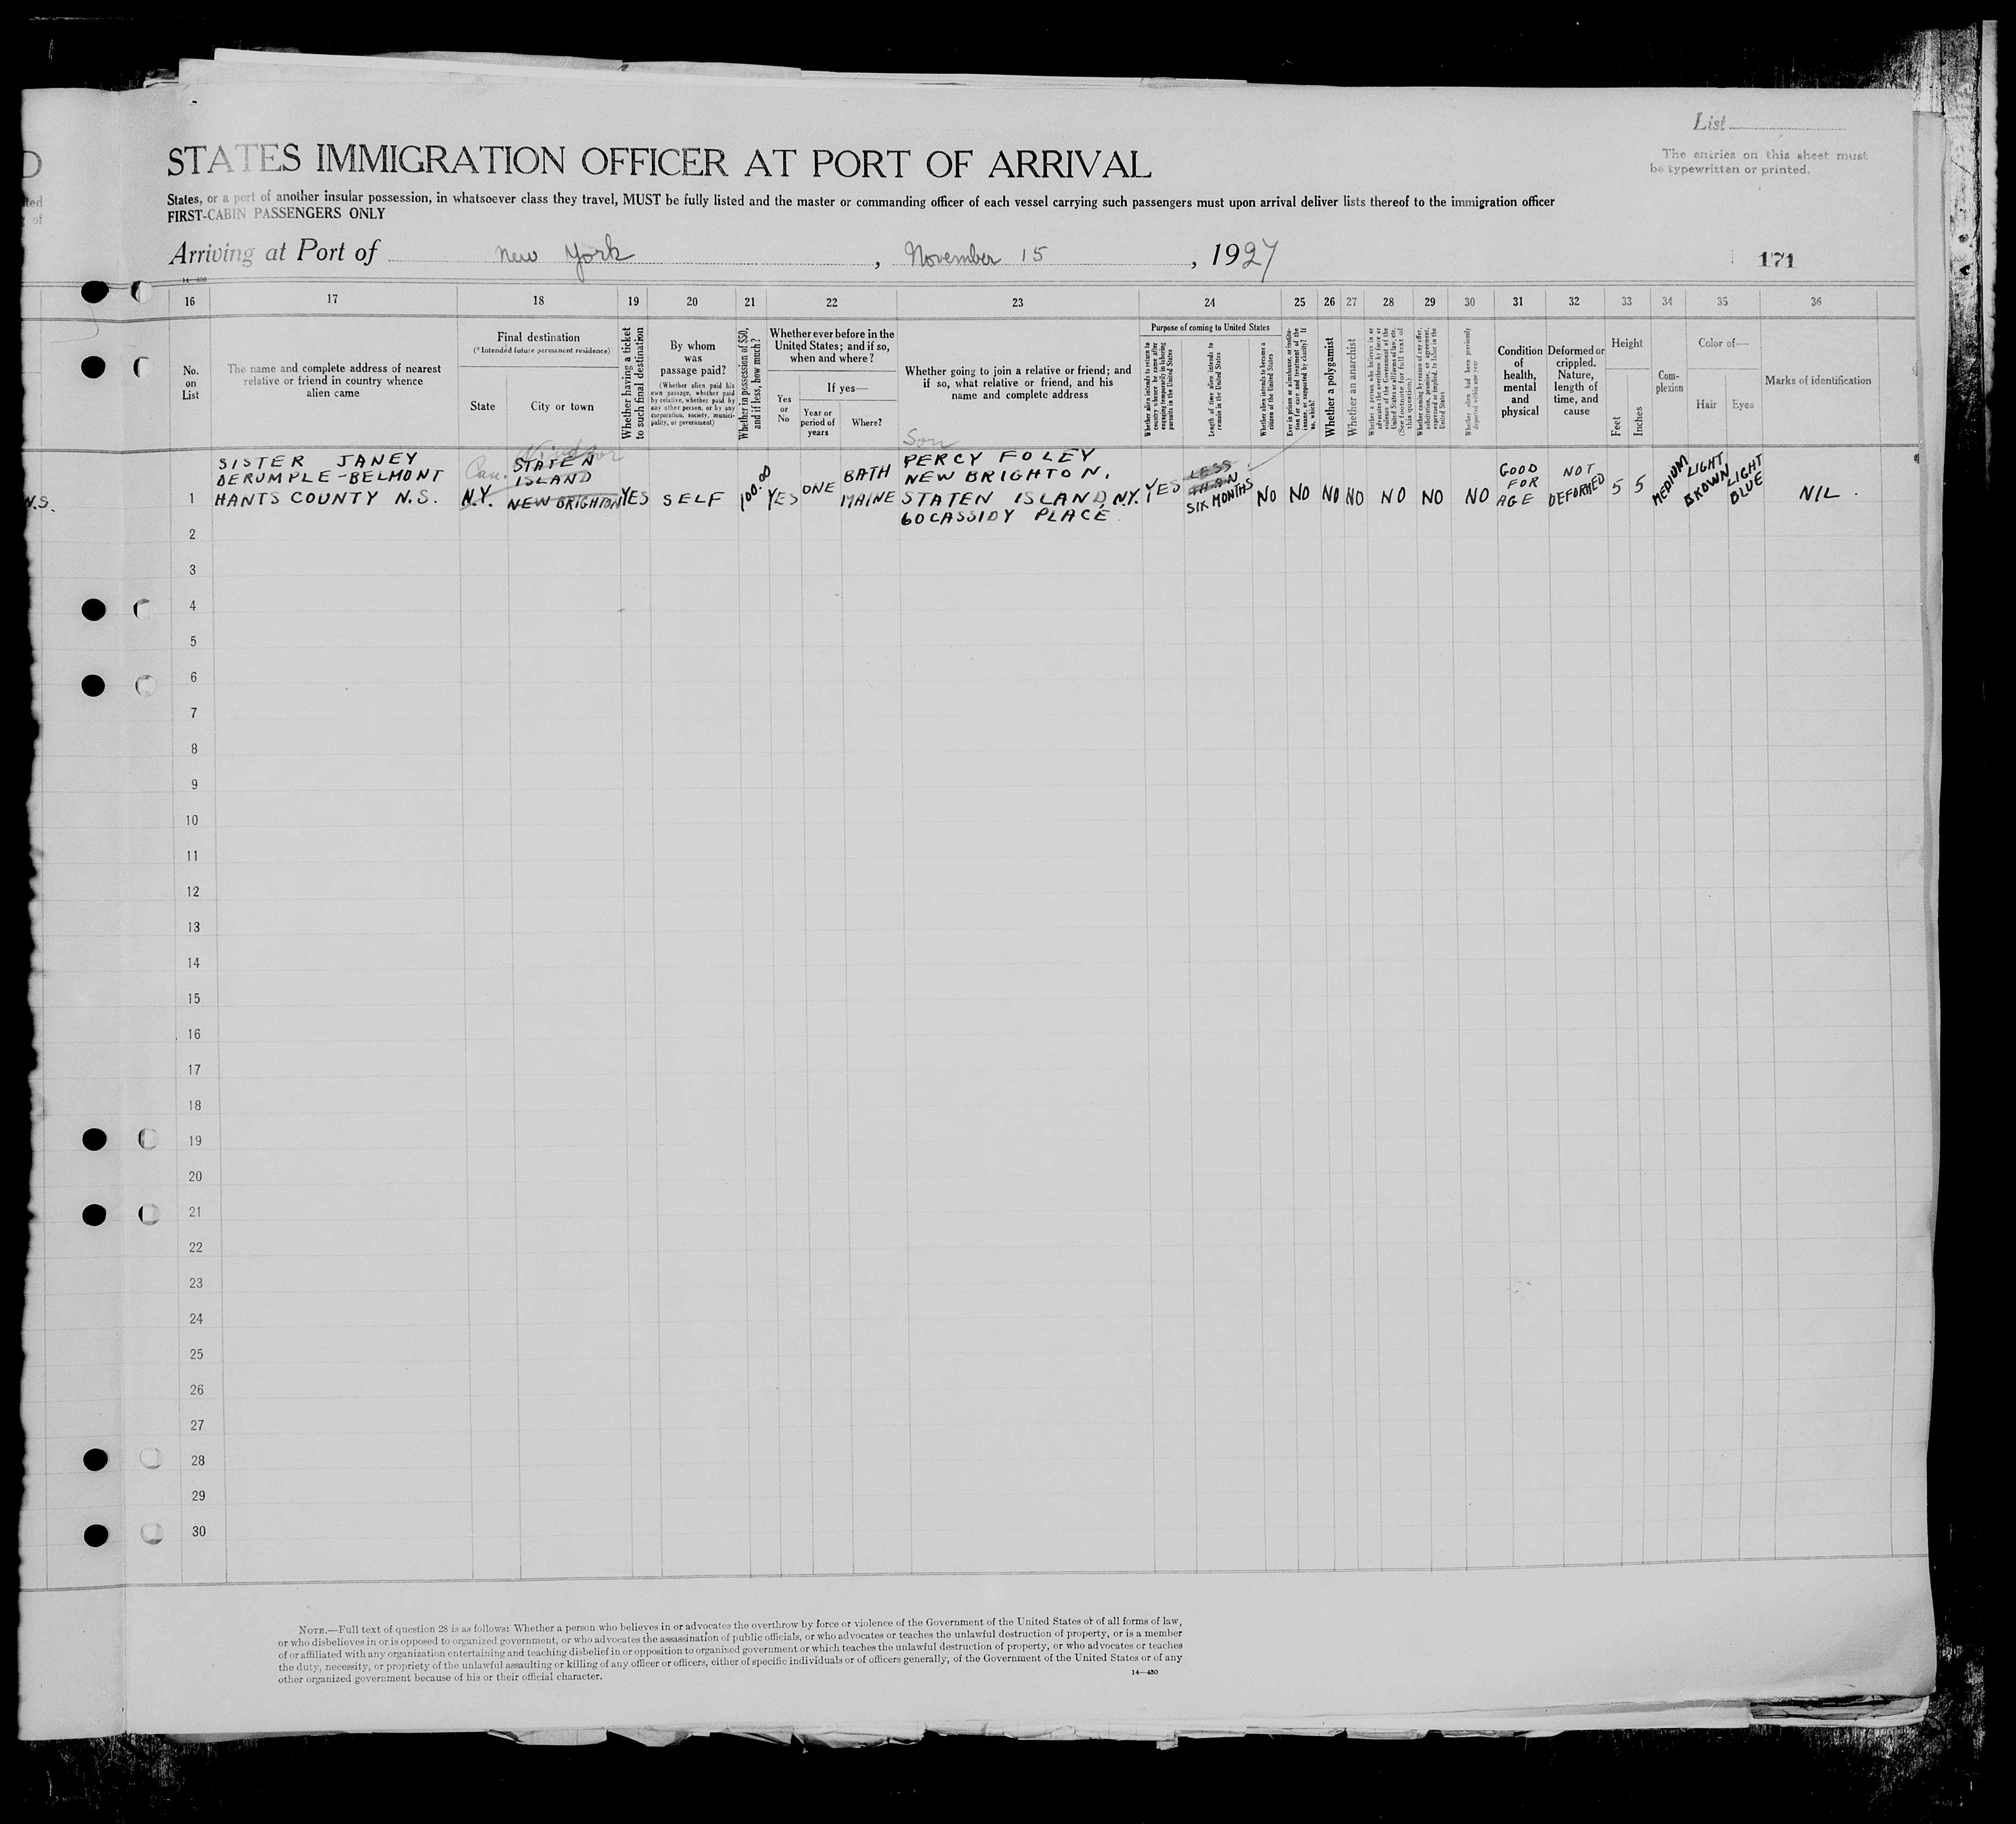 D
List
The entries on this sheet must
be typewritten or printed.
STATES IMMIGRATION OFFICER AT PORT OF ARRIVAL
ted
of
States, or a port of another insular possession, in whatsoever class they travel, MUST be fully listed and the master or commanding officer of each vessel carrying such passengers must upon arrival deliver lists thereof to the immigration officer
FIRST-CABIN PASSENGERS ONLY
Arriving at Port of New York, November 15, 1927
171
14—430
16 17 18 19 20 21 22 23 24 25 26 27 28 29 30 31 32 33 34 35 36
No.
on
List
The name and complete address of nearest
relative or friend in country whence
alien came
Final destination
(*Intended future permanent residence)
State
City or town
Whether having a ticket
to such final destination
By whom
was
passage paid?
(Whether alien paid his
own passage, whether paid
by relative, whether paid by
any other person, or by any
corporation, society, munici-
pality, or government)
Whether in possession of $50,
and if less, how much?
Whether ever before in the
United States; and if so,
when and where?
Yes
or
No
If yes—
Year or
period of
years
Where?
Whether going to join a relative or friend; and
if so, what relative or friend, and his
name and complete address
Purpose of coming to United States
Whether alien intends to return to
country whence he came after
engaging temporarily in laboring
pursuits in the United States
Length of time alien intends to
remain in the United States
Whether alien intends to become a
citizen of the United States
Ever in prison or almshouse, or institu-
tion for care and treatment of the
insane, or supported by charity? If
so, which?
Whether a polygamist
Whether an anarchist
Whether a person who believes in or
advocates the overthrow by force or
violence of the Government of the
United States or all forms of law, etc.
(See footnote for full text of
this question)
Whether coming by reason of any offer,
solicitation, promise, or agreement,
expressed or implied, to labor in the
United States
Whether alien had been previously
deported within one year
Condition
of
health,
mental
and
physical
Deformed or
crippled.
Nature,
length of
time, and
cause
Height
Feet
Inches
Com-
plexion
Color of—
Hair
Eyes
Marks of identification
N.S.
1
SISTER JANEY
DERUMPLE-BELMONT
HANTS COUNTY N.S.
Can.
N.Y.
Windsor
STATEN
ISLAND
NEW BRIGHTON
YES
SELF
100.00
YES
ONE
BATH
MAINE
Son
PERCY FOLEY
NEW BRIGHTON,
STATEN ISLAND, N.Y.
60 CASSIDY PLACE
YES
LESS
THAN
SIX MONTHS
NO
NO
NO
NO
NO
NO
NO
GOOD
FOR
AGE
NOT
DEFORMED
5
5
MEDIUM
LIGHT
BROWN
LIGHT
BLUE
NIL.
2
3
4
5
6
7
8
9
10
11
12
13
14
15
16
17
18
19
20
21
22
23
24
25
26
27
28
29
30
NOTE.—Full text of question 28 is as follows: Whether a person who believes in or advocates the overthrow by force or violence of the Government of the United States or of all forms of law,
or who disbelieves in or is opposed to organized government, or who advocates the assassination of public officials, or who advocates or teaches the unlawful destruction of property, or is a member
of or affiliated with any organization entertaining and teaching disbelief in or opposition to organized government or which teaches the unlawful destruction of property, or who advocates or teaches
the duty, necessity, or propriety of the unlawful assaulting or killing of any officer or officers, either of specific individuals or of officers generally, of the Government of the United States or of any
other organized government because of his or their official character.
14—430